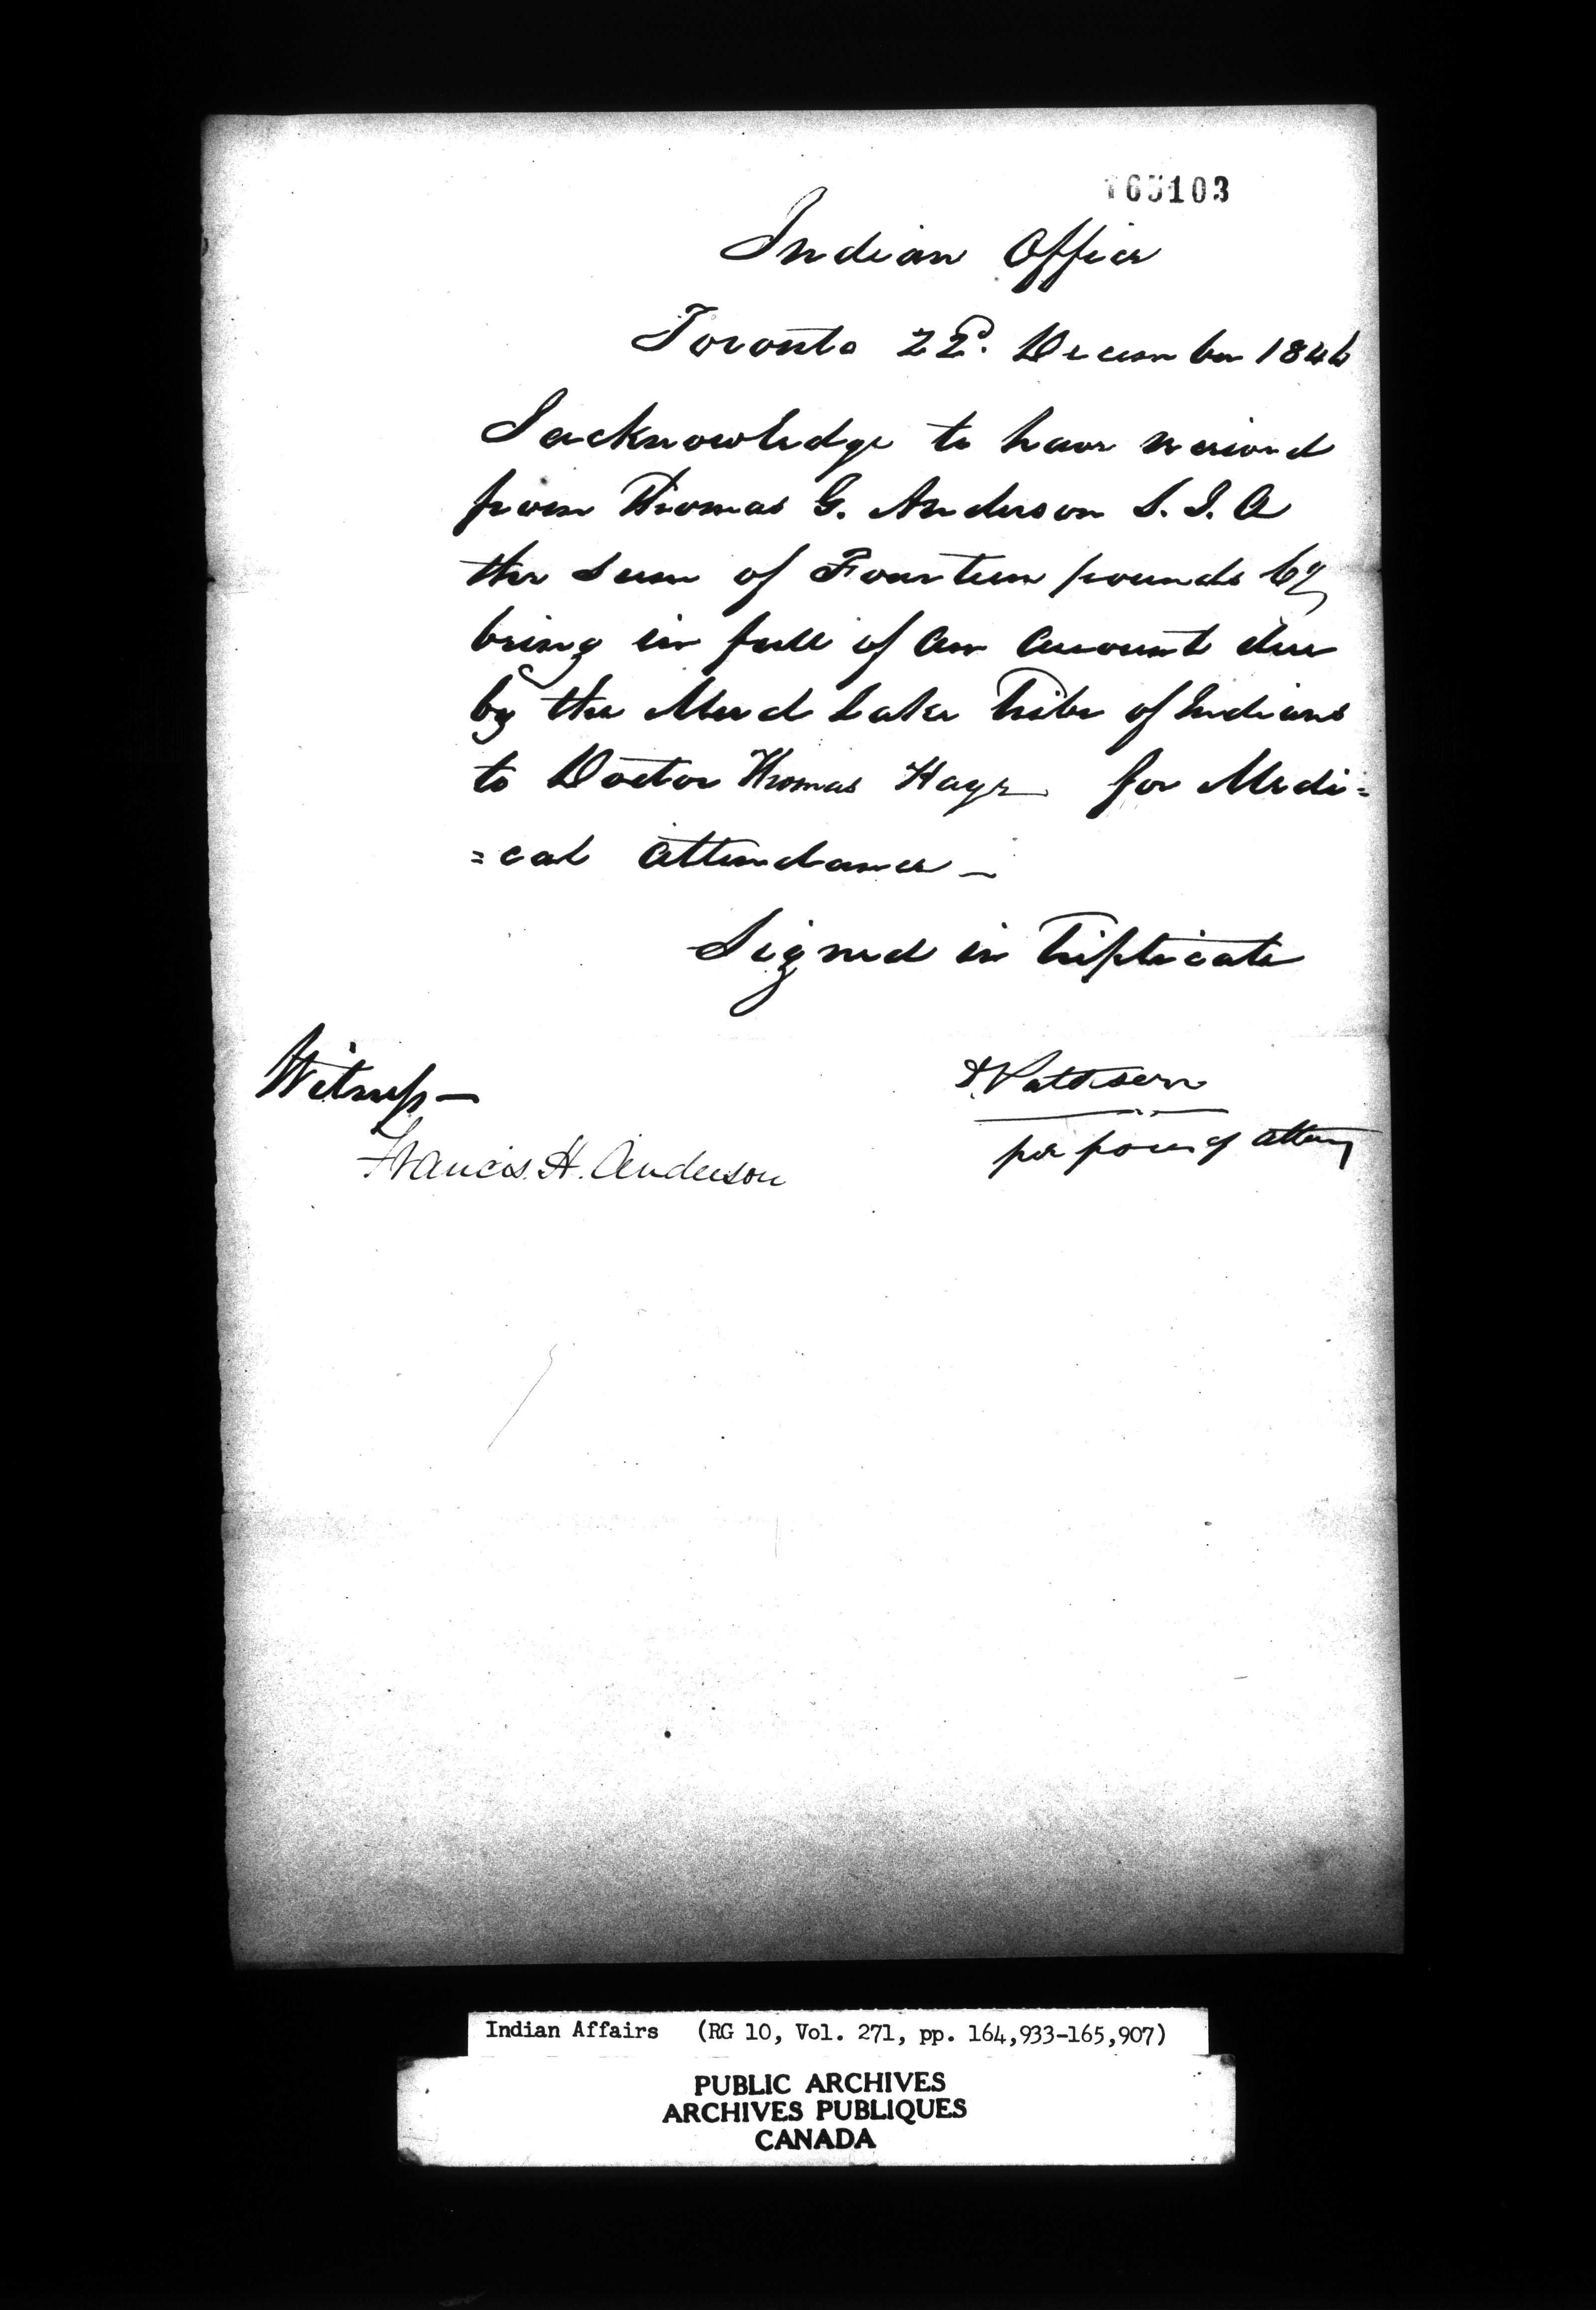 165103
Indian Office
Toronto 22d. December 1846
I acknowledge to have received
from Thomas G. Anderson S. I. A
the Sum of Fourteen pounds Cy
being in full of an Account due
by the Mud Lake Tribe of Indians
to Doctor Thomas Haye for Medi=
=cal attendance —
Signed in Triplicate
Witness —
Pattison
per power of attny
Francis. H. Anderson
Indian Affairs (RG 10, Vol. 271, pp. 164,933-165,907)
PUBLIC ARCHIVES
ARCHIVES PUBLIQUES
CANADA